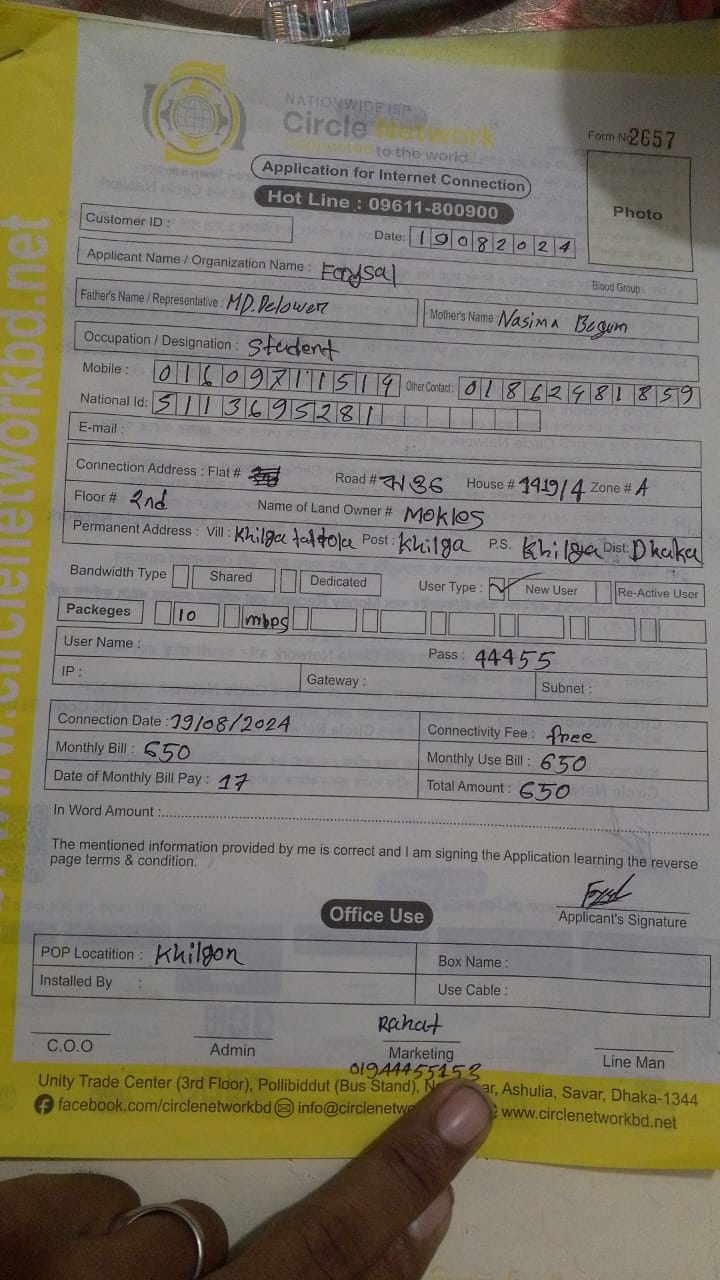 www.circlenetworkbd.net
NATIONWIDE ISP
Circle Network
Connected to the world.
Form No 2657
Application for Internet Connection
Hot Line : 09611-800900
Photo
Customer ID :
Date: 19082024
Applicant Name / Organization Name : Foaysal
Blood Group :
Father's Name / Representative : MD. Delower Mother's Name Nasima Begum
Occupation / Designation : Student
Mobile : 01609711519 Other Contact : 01862481859
National Id: 5113695281
E-mail :
Connection Address : Flat # Road # 36 House # 1419/4 Zone # A
Floor # 2nd Name of Land Owner # Moklos
Permanent Address : Vill : Khilga taltola Post : Khilga P.S. Khilga Dist: Dhaka
Bandwidth Type Shared Dedicated User Type : New User Re-Active User
Packeges 10 mbps
User Name : Pass : 44455
IP : Gateway : Subnet :
Connection Date : 19/08/2024 Connectivity Fee : free
Monthly Bill : 650 Monthly Use Bill : 650
Date of Monthly Bill Pay : 17 Total Amount : 650
In Word Amount :
The mentioned information provided by me is correct and I am signing the Application learning the reverse
page terms & condition.
Applicant's Signature
Office Use
POP Locatition : Khilgon Box Name :
Installed By : Use Cable :
Rahat
C.O.O Admin Marketing Line Man
01944455153
Unity Trade Center (3rd Floor), Pollibiddut (Bus Stand), Ashulia, Savar, Dhaka-1344
facebook.com/circlenetworkbd info@circlenetwo www.circlenetworkbd.net